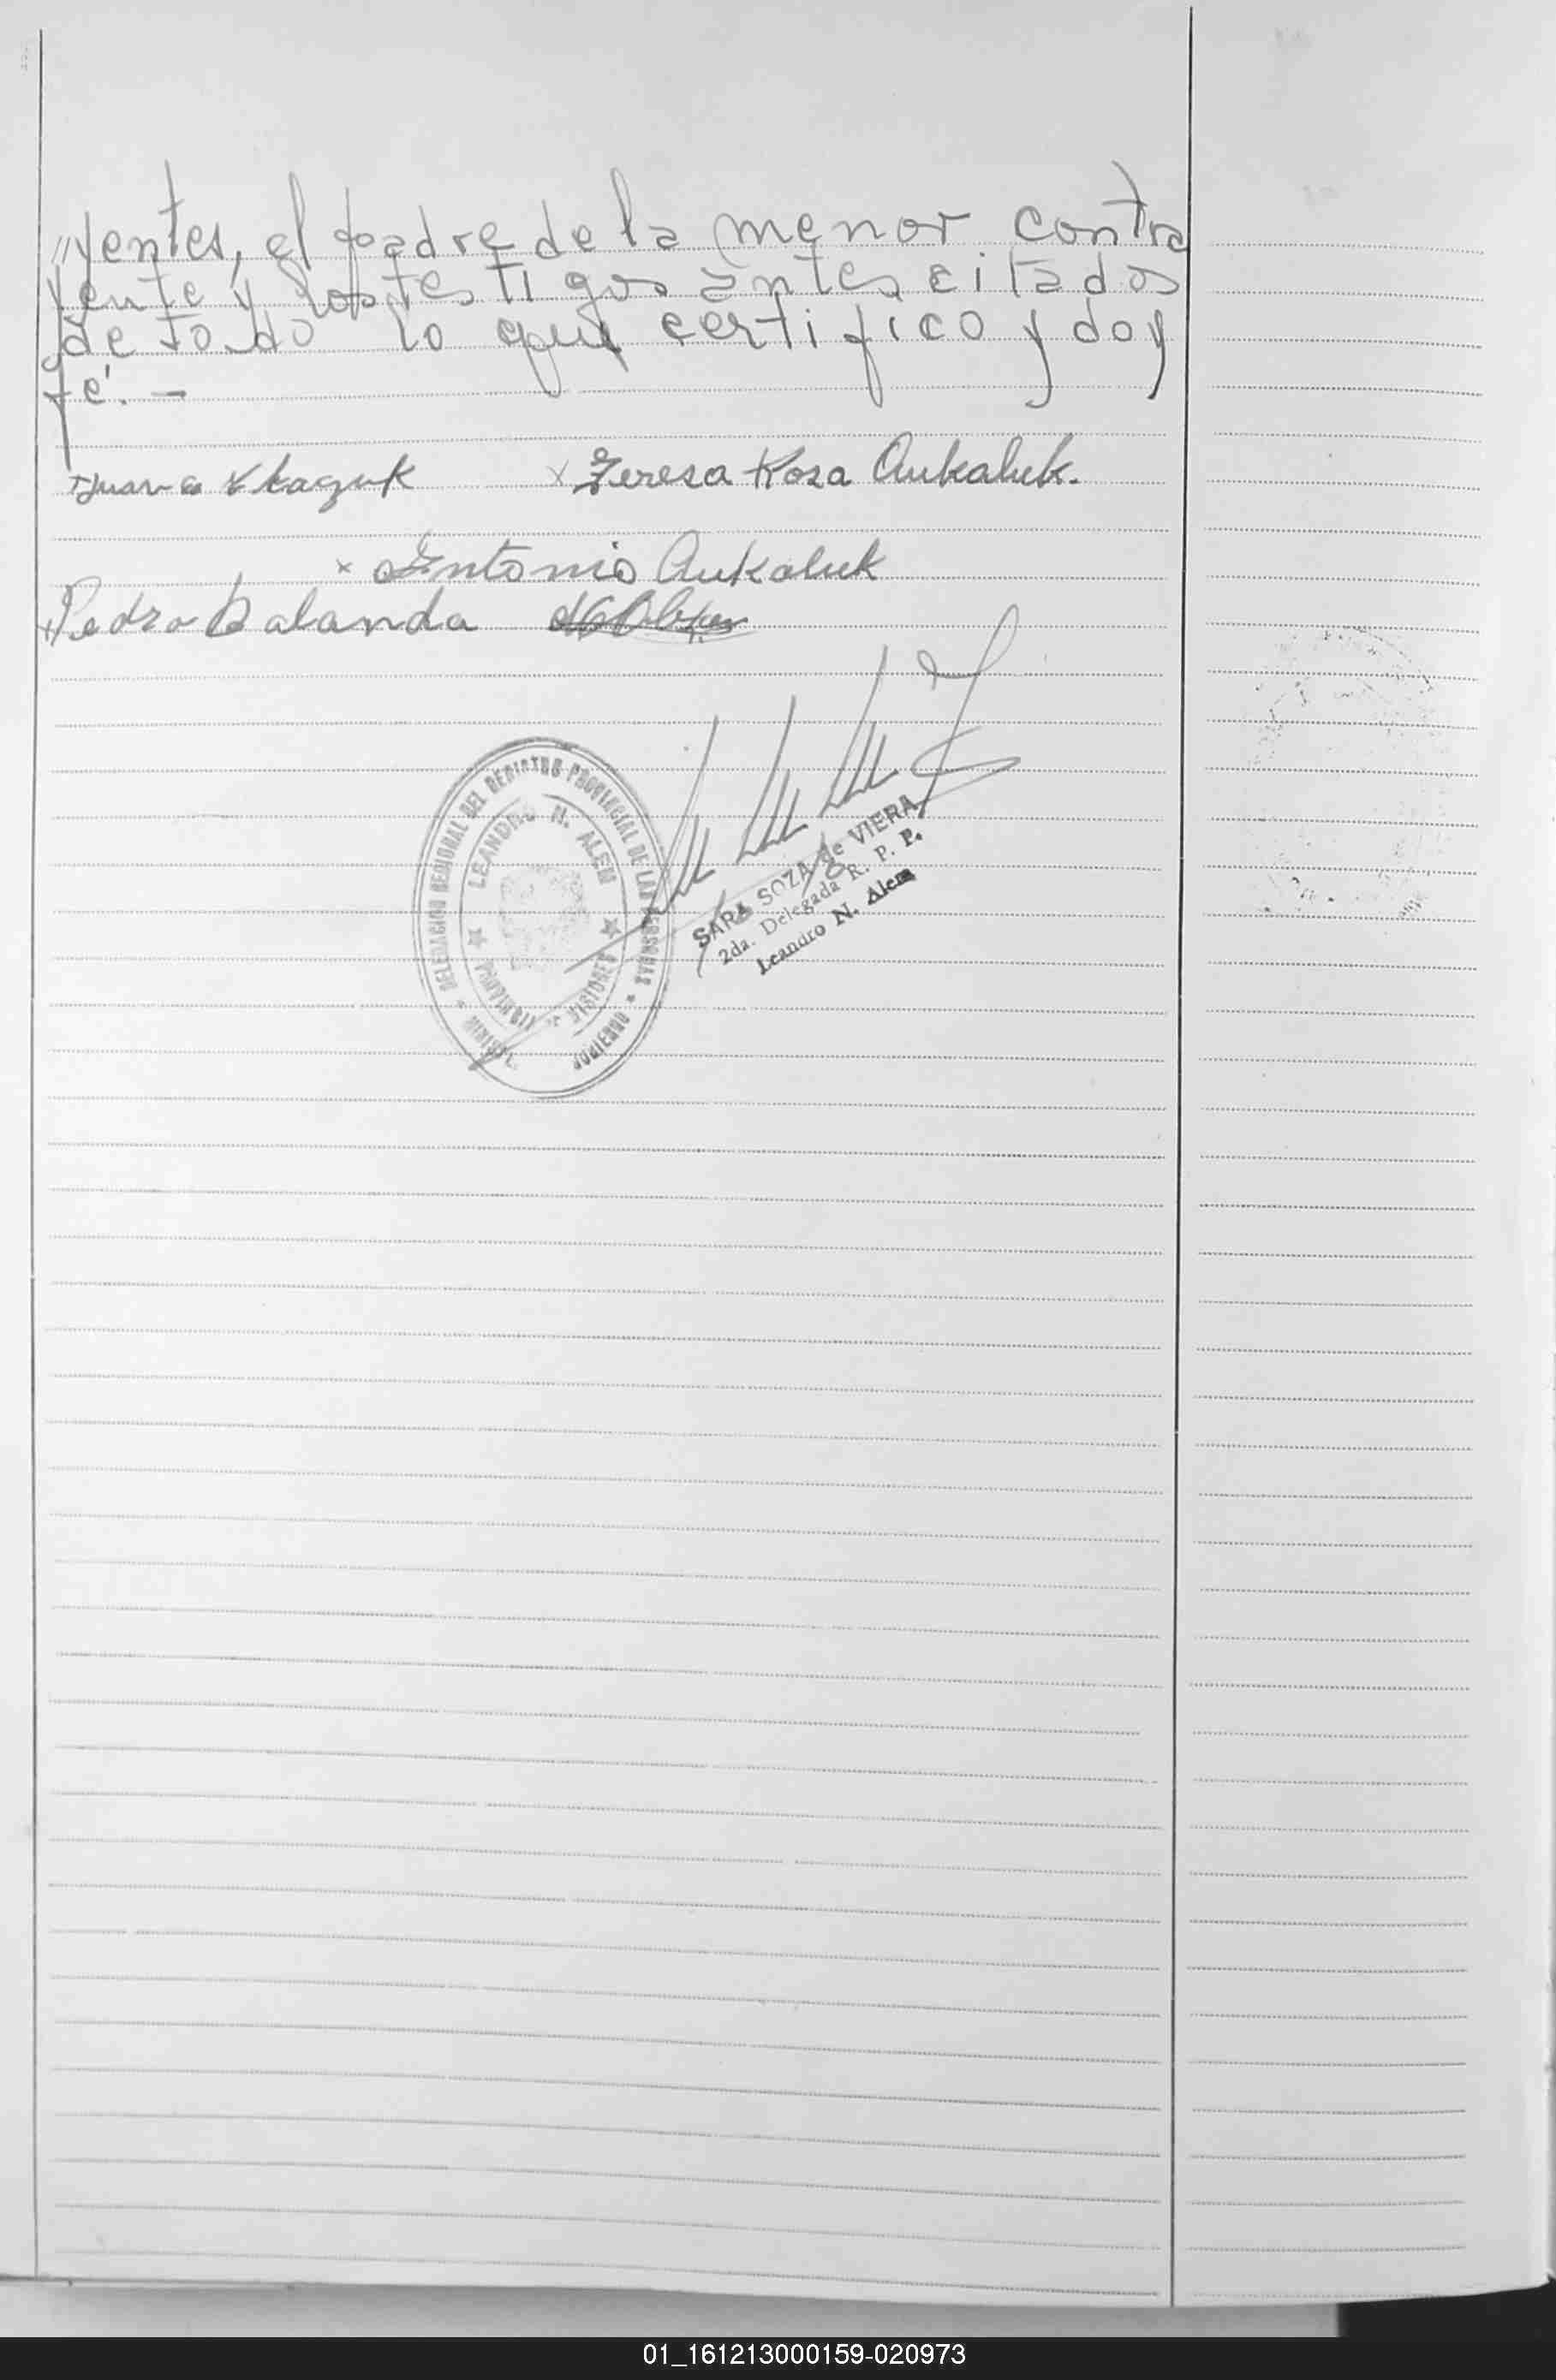 yentes, el padre de la menor contra
yente y los testigos antes citados
de todo lo que certifico y doy
fé. -
x Teresa Rosa Aukaluk.
x Antonio Aukaluk
Pedro Balanda
DELEGACION REGIONAL DEL REGISTRO PROVINCIAL DE LAS PERSONAS
LEANDRO N. ALEM
MISIONES
GOBIERNO
SARA SOZA de VIERA
2da. Delegada R. P. P.
Leandro N. Alem
01_161213000159-020973